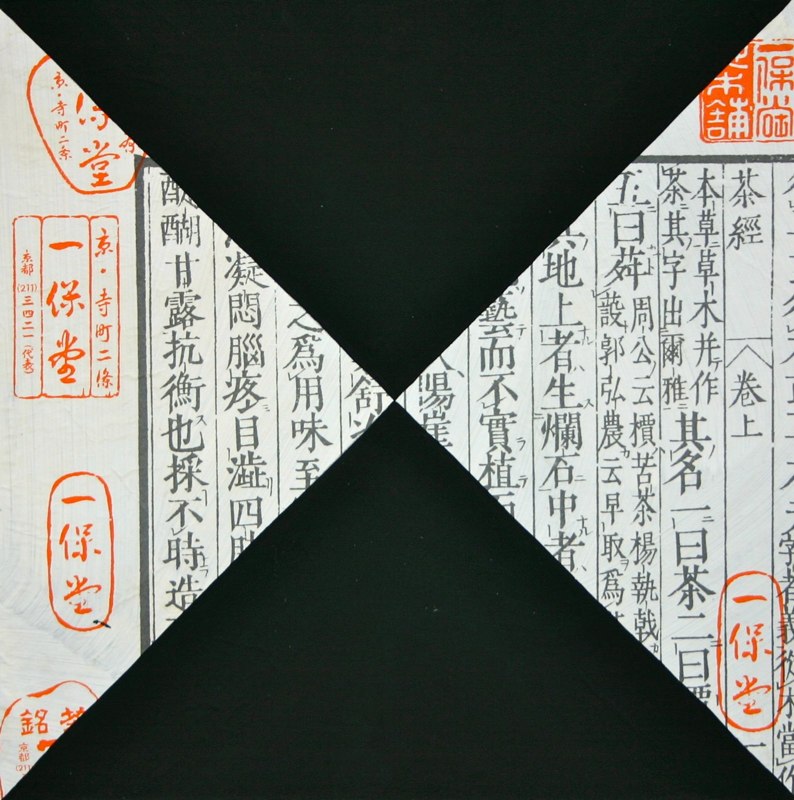 一保堂
茶舖
者義從木當作
茶經 卷上
一
本草草木并作
茶其字出爾雅
其名一曰茶二曰
一保堂
五曰荈
周公云檟苦茶楊執戟
設郭弘農云早取爲
地上者生爛石中者
藝而不實植
陽崖
舒
之爲用味至
凝悶腦疼目澁四
醍醐甘露抗衡也採不時造
保堂
京・寺町二条
京・寺町二條
一保堂
京都(211)三四二一(代表)
一保堂
銘
京都